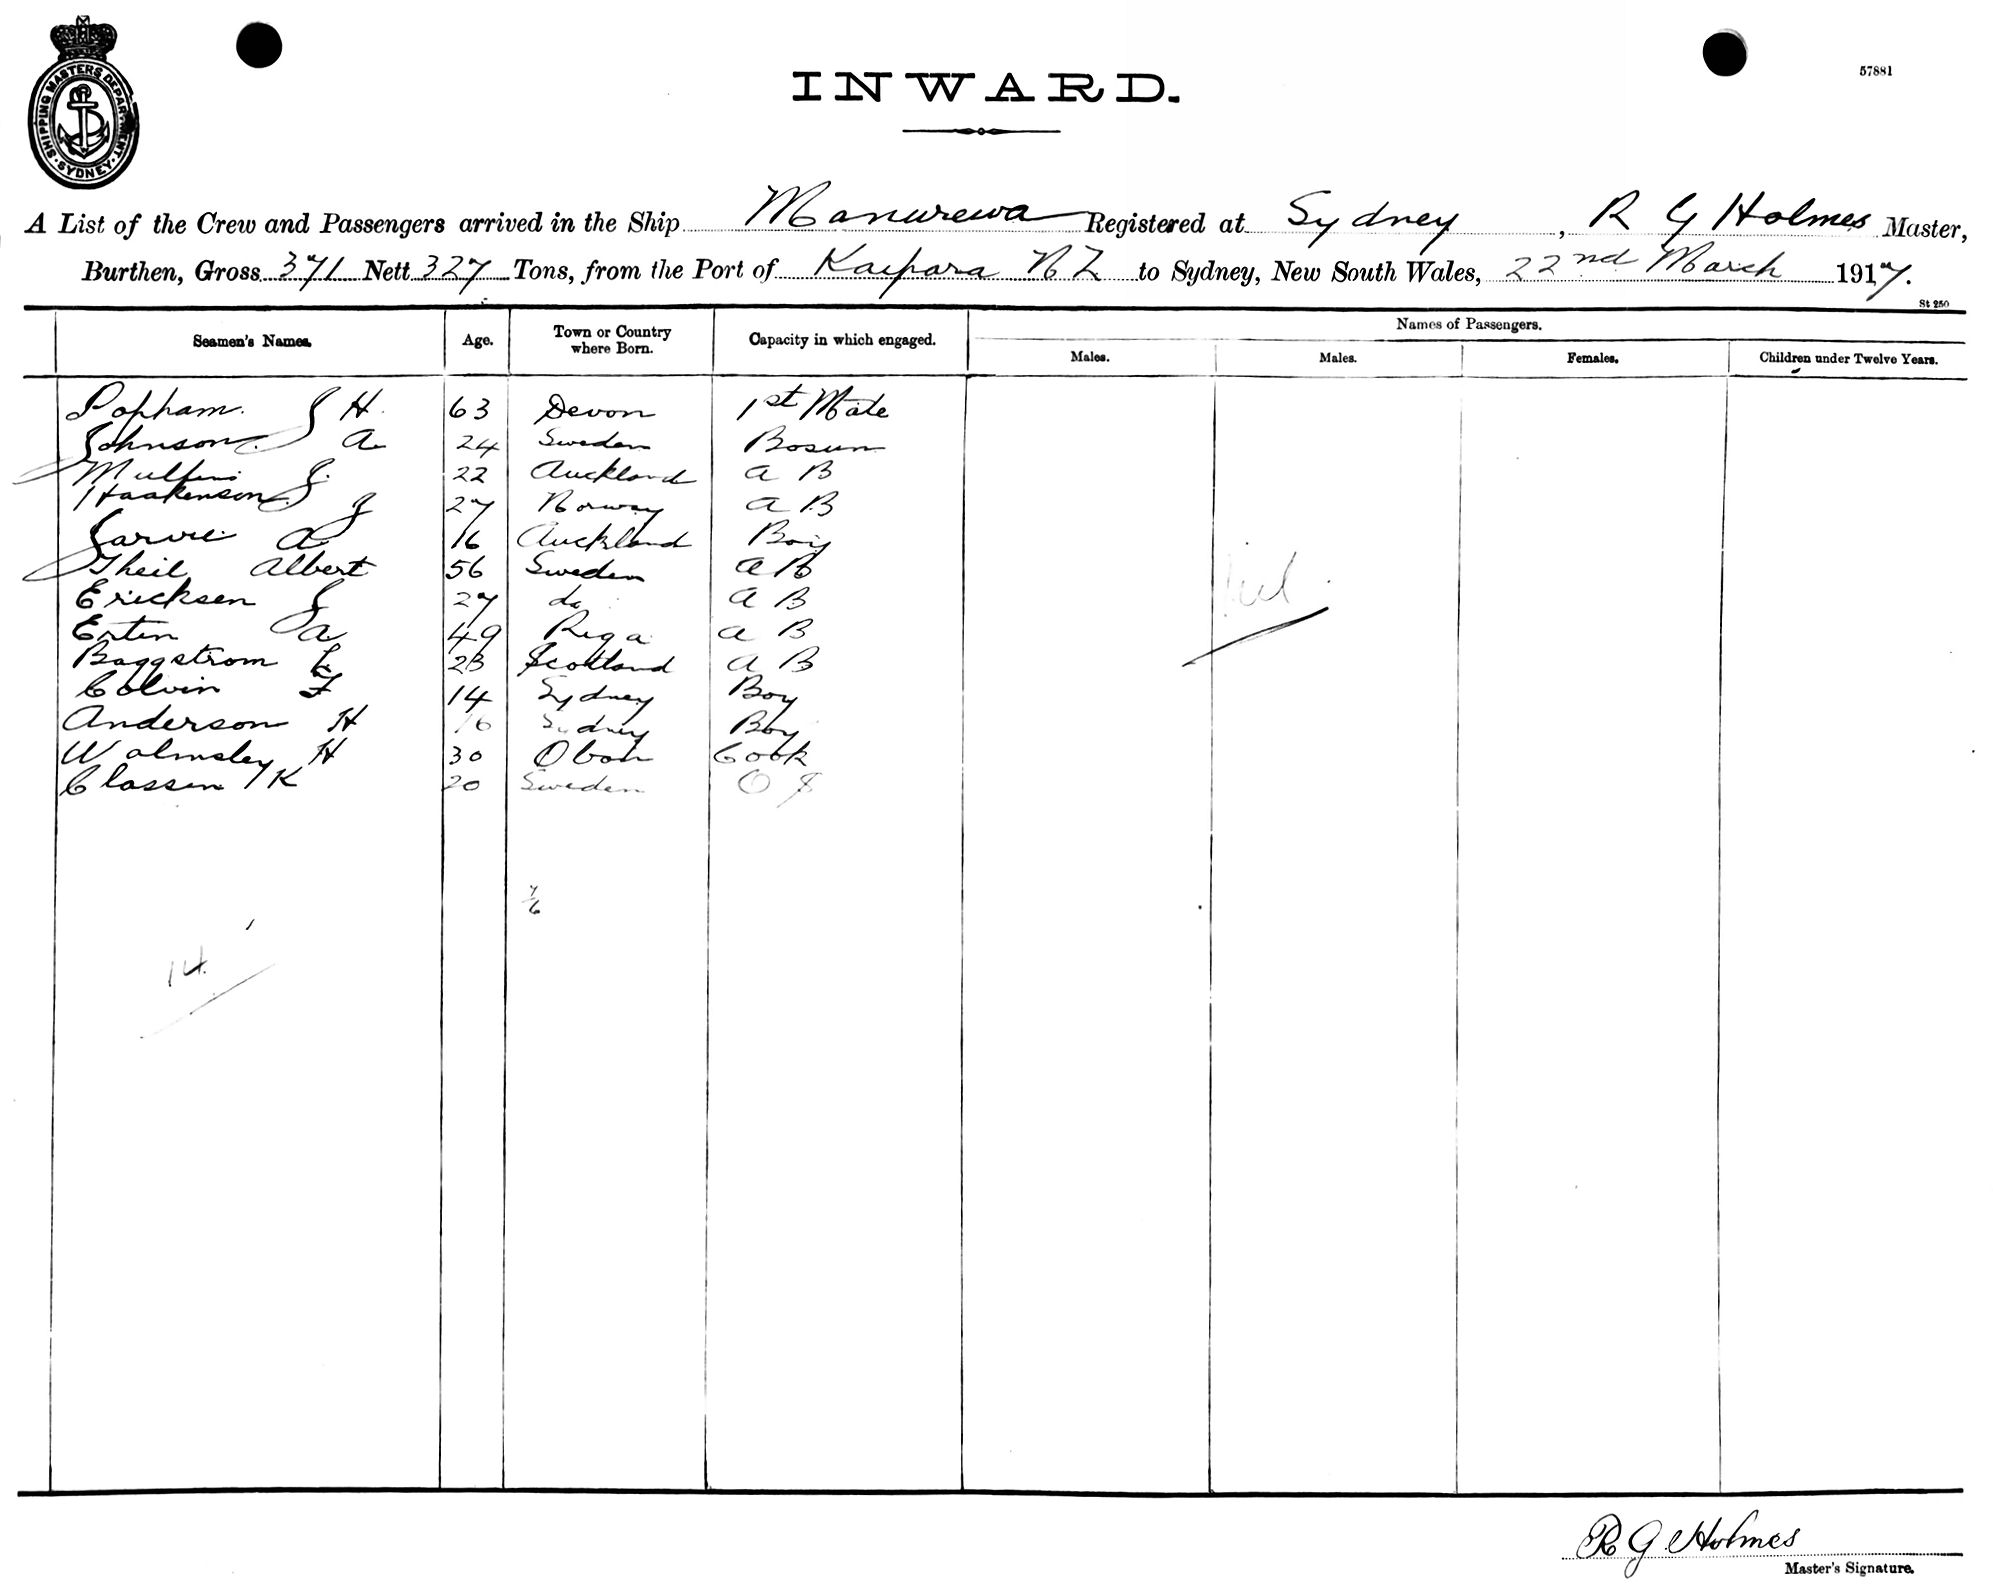 SHIPPING MASTERS DEPARTMENT · SYDNEY ·
57881
INWARD.
A List of the Crew and Passengers arrived in the Ship Manurewa Registered at Sydney, R G Holmes Master,
Burthen, Gross 371 Nett 327 Tons, from the Port of Kaipara NZ to Sydney, New South Wales, 22nd March 1917.
St 250
Seamen's Names. Age. Town or Country where Born. Capacity in which engaged. Names of Passengers.
Males. Males. Females. Children under Twelve Years.
Popham J H. 63 Devon 1st Mate
Johnson A 24 Sweden Bosun
Mullins J. 22 Auckland A B
Haakenson J 27 Norway A B
Jarvie A 16 Auckland Boy
Theil Albert 56 Sweden A B
Ericksen J 27 do A B
Erten A 49 Riga A B
Baggstrom L 23 Scotland A B
Colvin F 14 Sydney Boy
Anderson H 16 Sydney Boy
Walmsley H 30 Oban Cook
Classen K 20 Sweden O S
Nil
14
R G Holmes
Master's Signature.